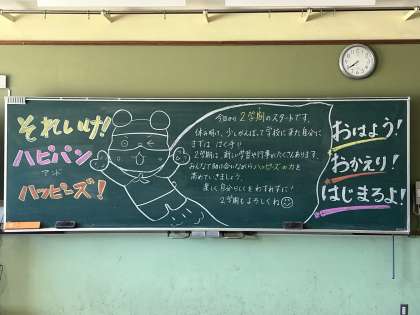 それいけ!
ハピパン
アンド
ハッピーズ!
今日から2学期のスタートです。
休み明け、少しがんばって学校に来た自分に
まずは はく手!!
2学期は、新しい学習や行事がたくさんあります。
みんなで助け合いながらハッピーズの力を
高めていきましょう。
楽しく自分らしくをわすれずに!
2学期もよろしくね
おはよう!
おかえり!
はじまるよ!